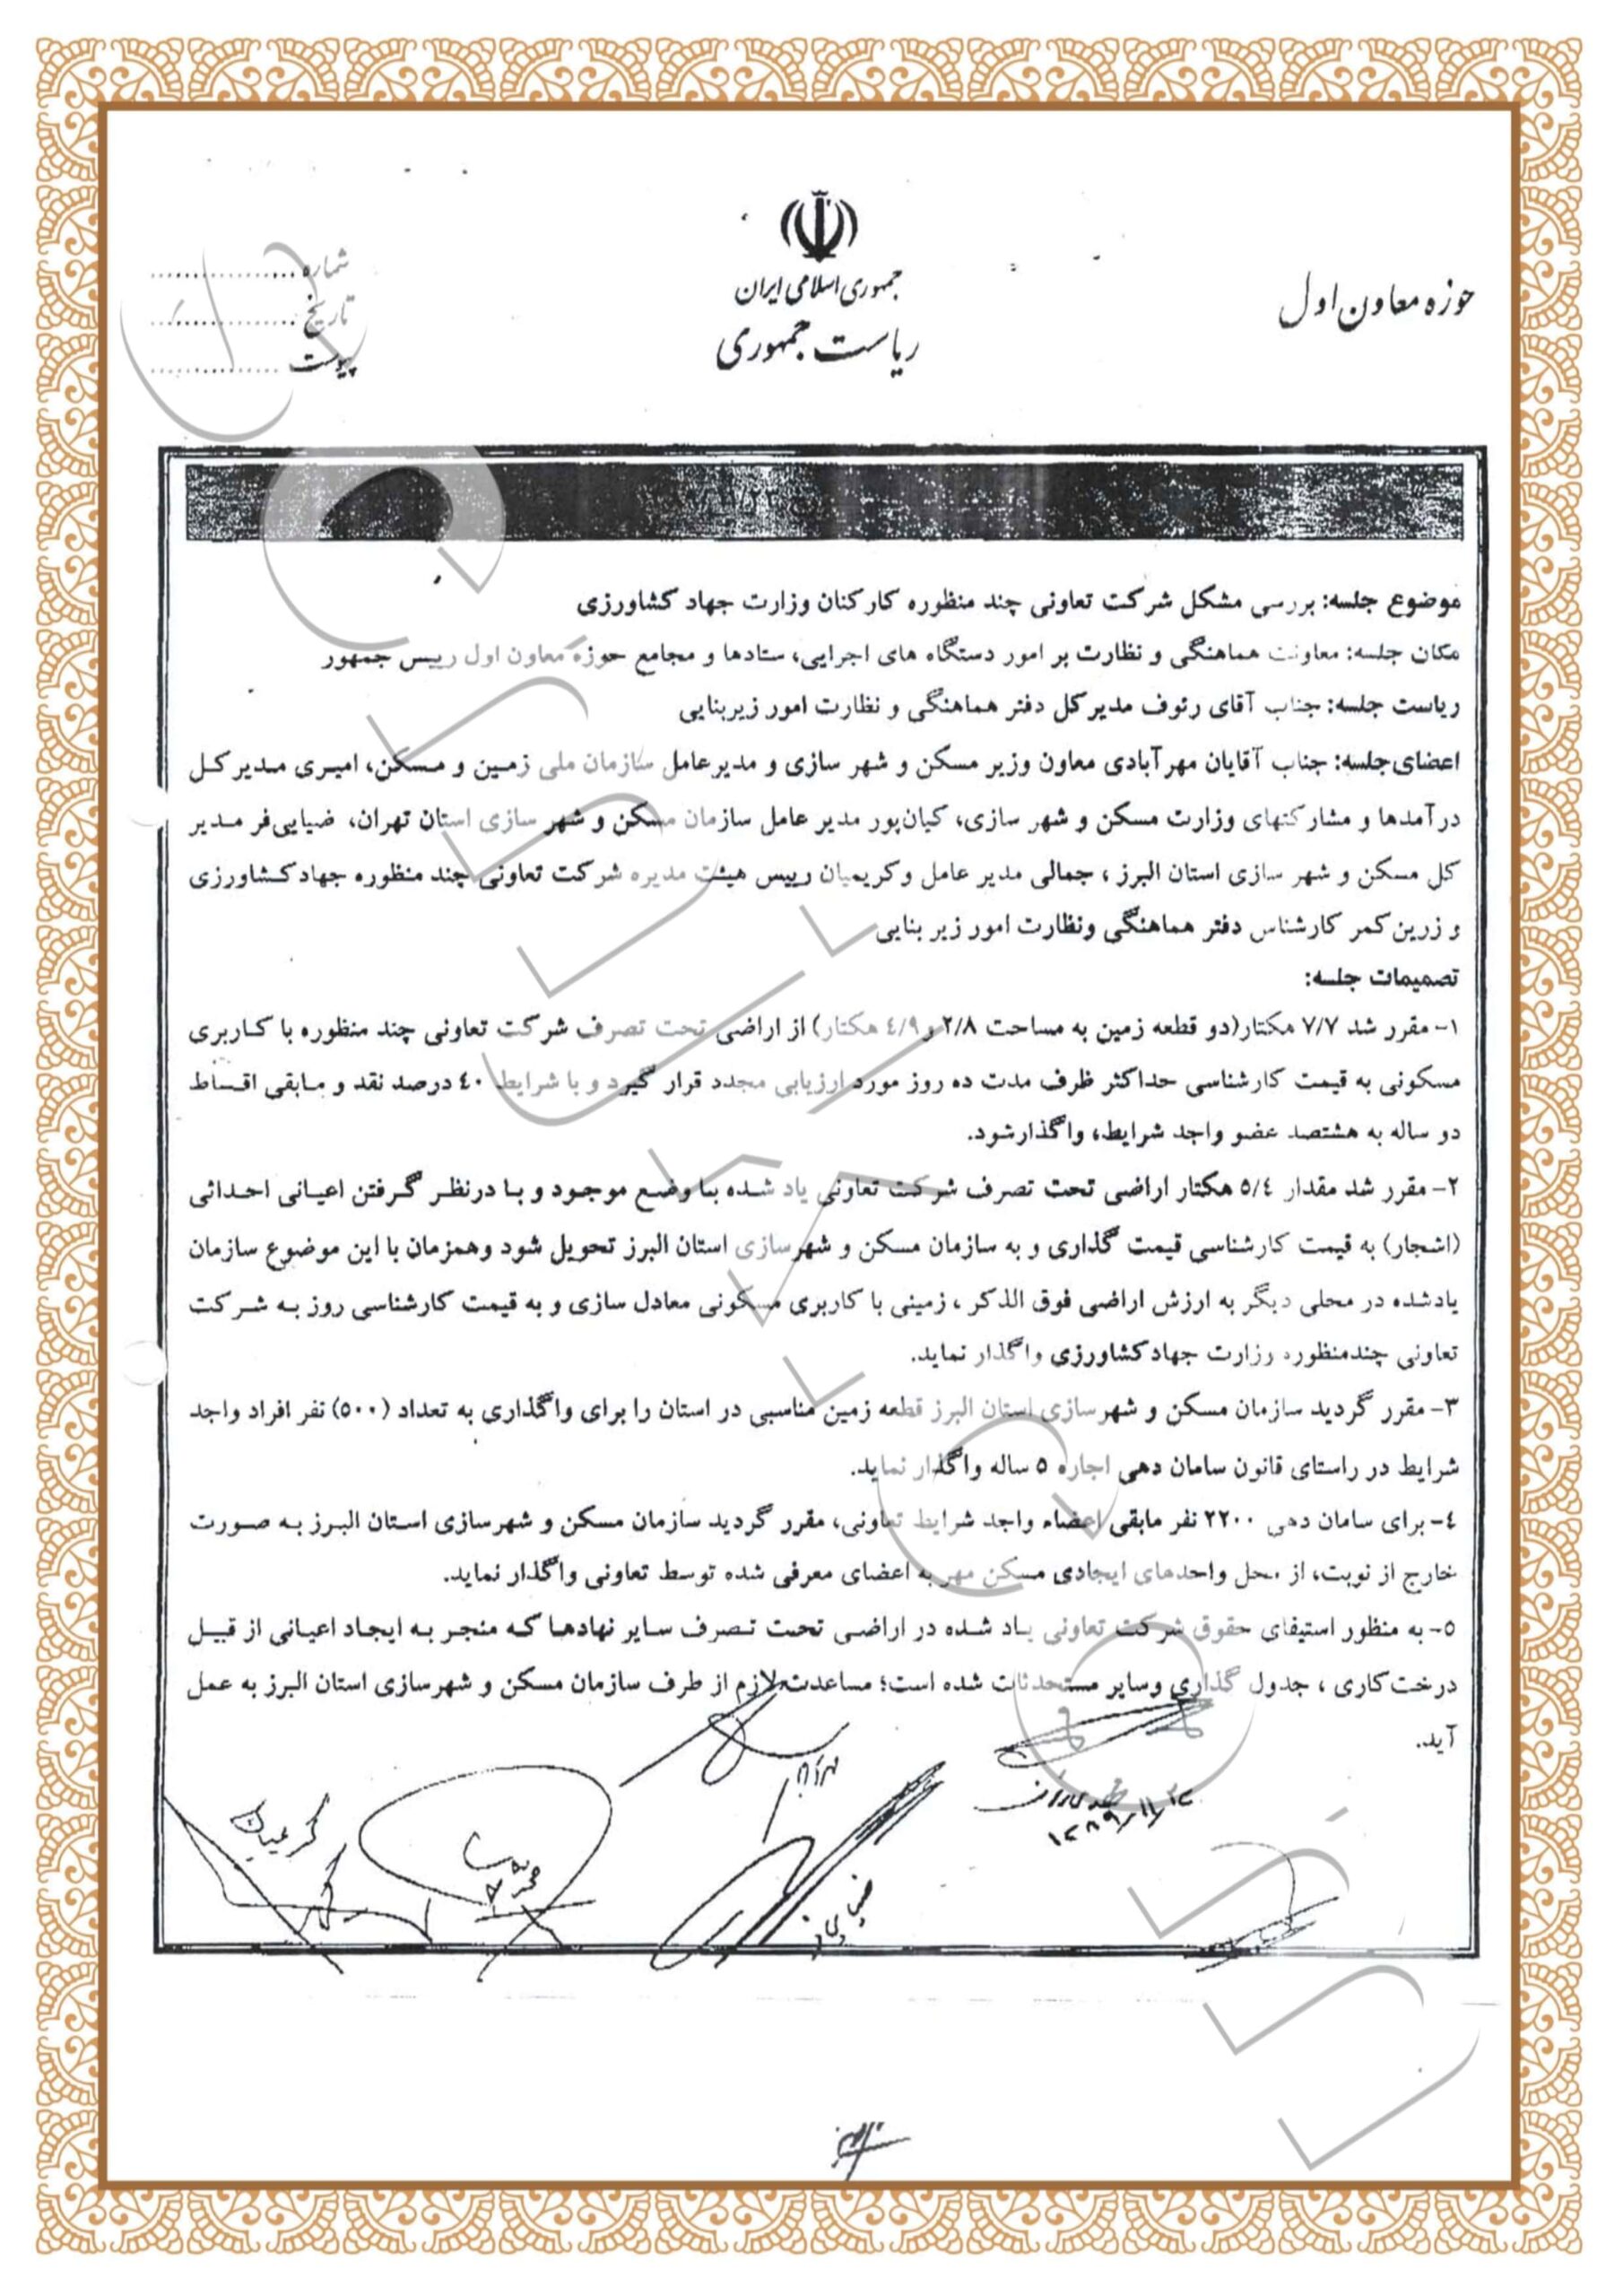 حوزه معاون اول
جمهوری اسلامی ایران
ریاست جمهوری
شماره
تاریخ
پیوست
موضوع جلسه: بررسی مشکل شرکت تعاونی چند منظوره کارکنان وزارت جهاد کشاورزی
مکان جلسه: معاونت هماهنگی و نظارت بر امور دستگاه های اجرایی، ستادها و مجامع حوزه معاون اول رییس جمهور
ریاست جلسه: جناب آقای رئوف مدیرکل دفتر هماهنگی و نظارت امور زیربنایی
اعضای جلسه: جناب آقایان مهرآبادی معاون وزیر مسکن و شهر سازی و مدیرعامل سازمان ملی زمین و مسکن، امیری مدیر کل
درآمدها و مشارکتهای وزارت مسکن و شهر سازی، کیان‌پور مدیر عامل سازمان مسکن و شهر سازی استان تهران، ضیایی‌فر مدیر
کل مسکن و شهر سازی استان البرز ، جمالی مدیر عامل وکریمیان رییس هیئت مدیره شرکت تعاونی چند منظوره جهاد کشاورزی
و زرین کمر کارشناس دفتر هماهنگی ونظارت امور زیر بنایی
تصمیمات جلسه:
۱- مقرر شد ۷/۷ هکتار(دو قطعه زمین به مساحت ۲/۸ و ٤/۹ هکتار) از اراضی تحت تصرف شرکت تعاونی چند منظوره با کاربری
مسکونی به قیمت کارشناسی حداکثر ظرف مدت ده روز مورد ارزیابی مجدد قرار گیرد و با شرایط ٤۰ درصد نقد و مابقی اقساط
دو ساله به هشتصد عضو واجد شرایط، واگذارشود.
۲- مقرر شد مقدار ٥/٤ هکتار اراضی تحت تصرف شرکت تعاونی یاد شده با وضع موجود و با درنظر گرفتن اعیانی احداثی
(اشجار) به قیمت کارشناسی قیمت گذاری و به سازمان مسکن و شهرسازی استان البرز تحویل شود وهمزمان با این موضوع سازمان
یادشده در محلی دیگر به ارزش اراضی فوق الذکر ، زمینی با کاربری مسکونی معادل سازی و به قیمت کارشناسی روز به شرکت
تعاونی چندمنظوره وزارت جهاد کشاورزی واگذار نماید.
۳- مقرر گردید سازمان مسکن و شهرسازی استان البرز قطعه زمین مناسبی در استان را برای واگذاری به تعداد (٥۰۰) نفر افراد واجد
شرایط در راستای قانون سامان دهی اجاره ٥ ساله واگذار نماید.
٤- برای سامان دهی ۲۲۰۰ نفر مابقی اعضاء واجد شرایط تعاونی، مقرر گردید سازمان مسکن و شهرسازی استان البرز به صورت
خارج از نوبت، از محل واحدهای ایجادی مسکن مهر به اعضای معرفی شده توسط تعاونی واگذار نماید.
٥- به منظور استیفای حقوق شرکت تعاونی یاد شده در اراضی تحت تصرف سایر نهادها که منجر به ایجاد اعیانی از قبیل
درخت کاری ، جدول گذاری وسایر مستحدثات شده است؛ مساعدت لازم از طرف سازمان مسکن و شهرسازی استان البرز به عمل
آید.
کریمیان